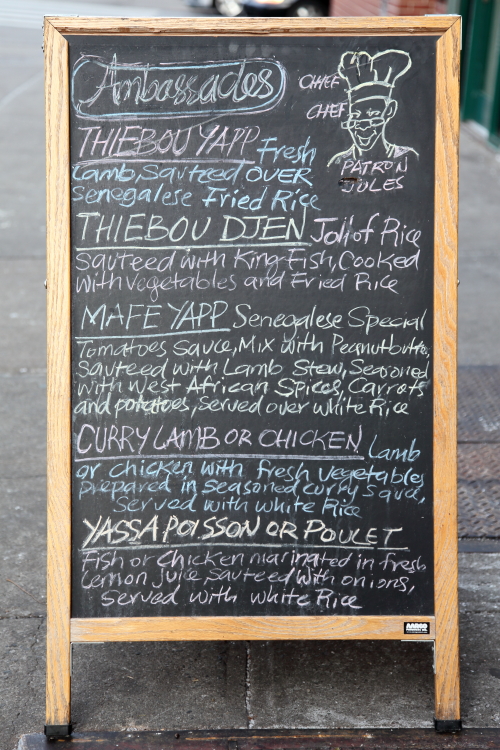 Ambassades
CHIEF
CHEF
PATRON
JULES
THIEBOU YAPP Fresh
Lamb, Sauteed OVER
Senegalese Fried Rice
THIEBOU DJEN Jollof Rice
Sauteed with King Fish, Cooked
with vegetables and Fried Rice
MAFE YAPP Senegalese Special
Tomatoes Sauce, Mix with Peanutbutter,
Sauteed with Lamb Stew, Seasoned
with West African Spices, Carrots
and potatoes, Served over white Rice
CURRY LAMB OR CHICKEN Lamb
or chicken with fresh vegetables
prepared in seasoned curry sauce,
Served with white Rice
YASSA POISSON OR POULET
Fish or Chicken marinated in fresh
Lemon juice, Sauteed with onions,
Served with white Rice
AARCO